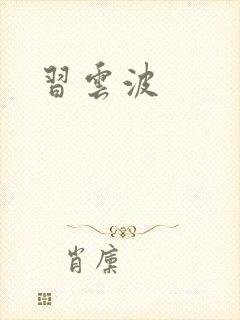 習雲波
肖